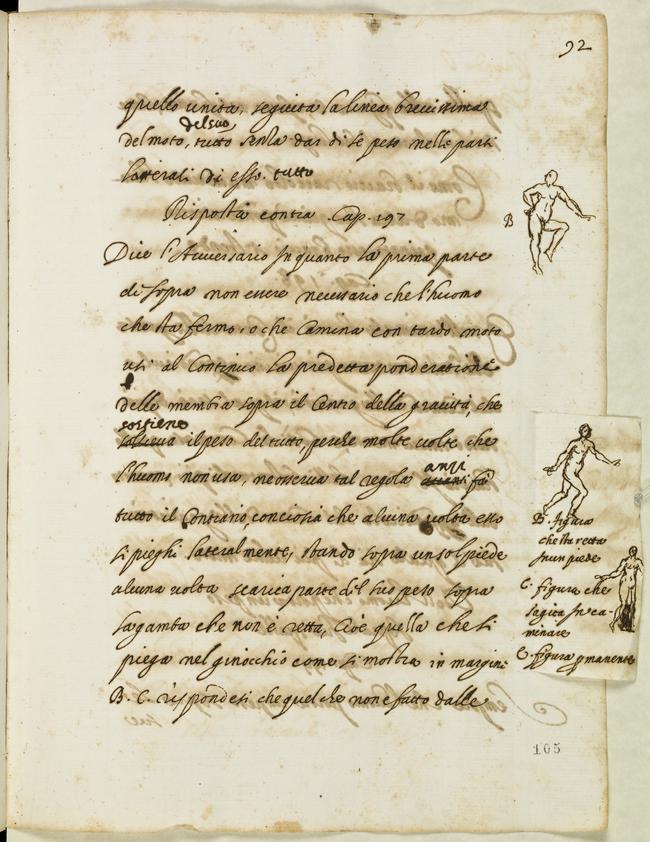 92
quello unita, seguita la linea brevissima
del suo
del moto, tutto senza dar di se peso nelle parti
laterali di esso. tutto
Risposta contra. Cap. 197
B
Dice l'Avversario in quanto la prima parte
di sopra non essere necessario che l'huomo
che sta fermo, o che Camina con tardo moto
usi al Continuo la predetta ponderatione
delle membra sopra il Centro della gravità, che
sostiene
solleva il peso del tutto, perche molte volte che
l'huomo non usa, ne osserva tal regola
anzi
fa
tutto il Contrario, conciosia che alcuna volta esso
si pieghi lateralmente, stando sopra un sol piede
alcuna volta scarica parte del suo peso sopra
la gamba che non è retta, Cioè quella che si
piega nel ginocchio come si mostra in margine
B. C. rispondesi che quel che non e fatto dalle
B. figura
che sta retta
in un piede
C. figura che
s'agita in ca-
minare
C. figura permanente
105